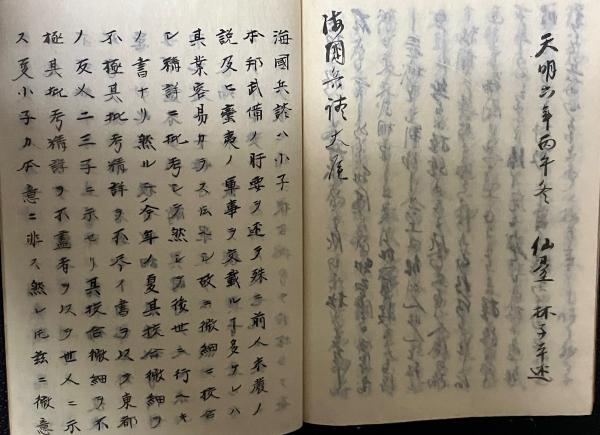 天明六年丙午冬 仙臺 林子平述
海國兵談大尾
海國兵談ハ小子
本邦武備ノ肝要ヲ述タ殊ニ前人未發ノ
説及ヒ蠻夷ノ軍事ヲ交載ルヿ多ケレハ
其業容易カラス故ニ微細ニ挍合
シ精詳ニ批考セラ然シテ後世ニ行ヘキ
ノ書ナリ然ルニ今年ノ夏其挍合微細ヲ
不極其批考精詳ヲ不尽イ書ヲ以テ東都
ノ友人二三子ニ示セリ其挍合微細ヲ不
極其批考精詳ヲ不盡者ヲ以テ世人ニ示
ス夏小子カ本意ニ非ス然レ𪜈茲ニ微意